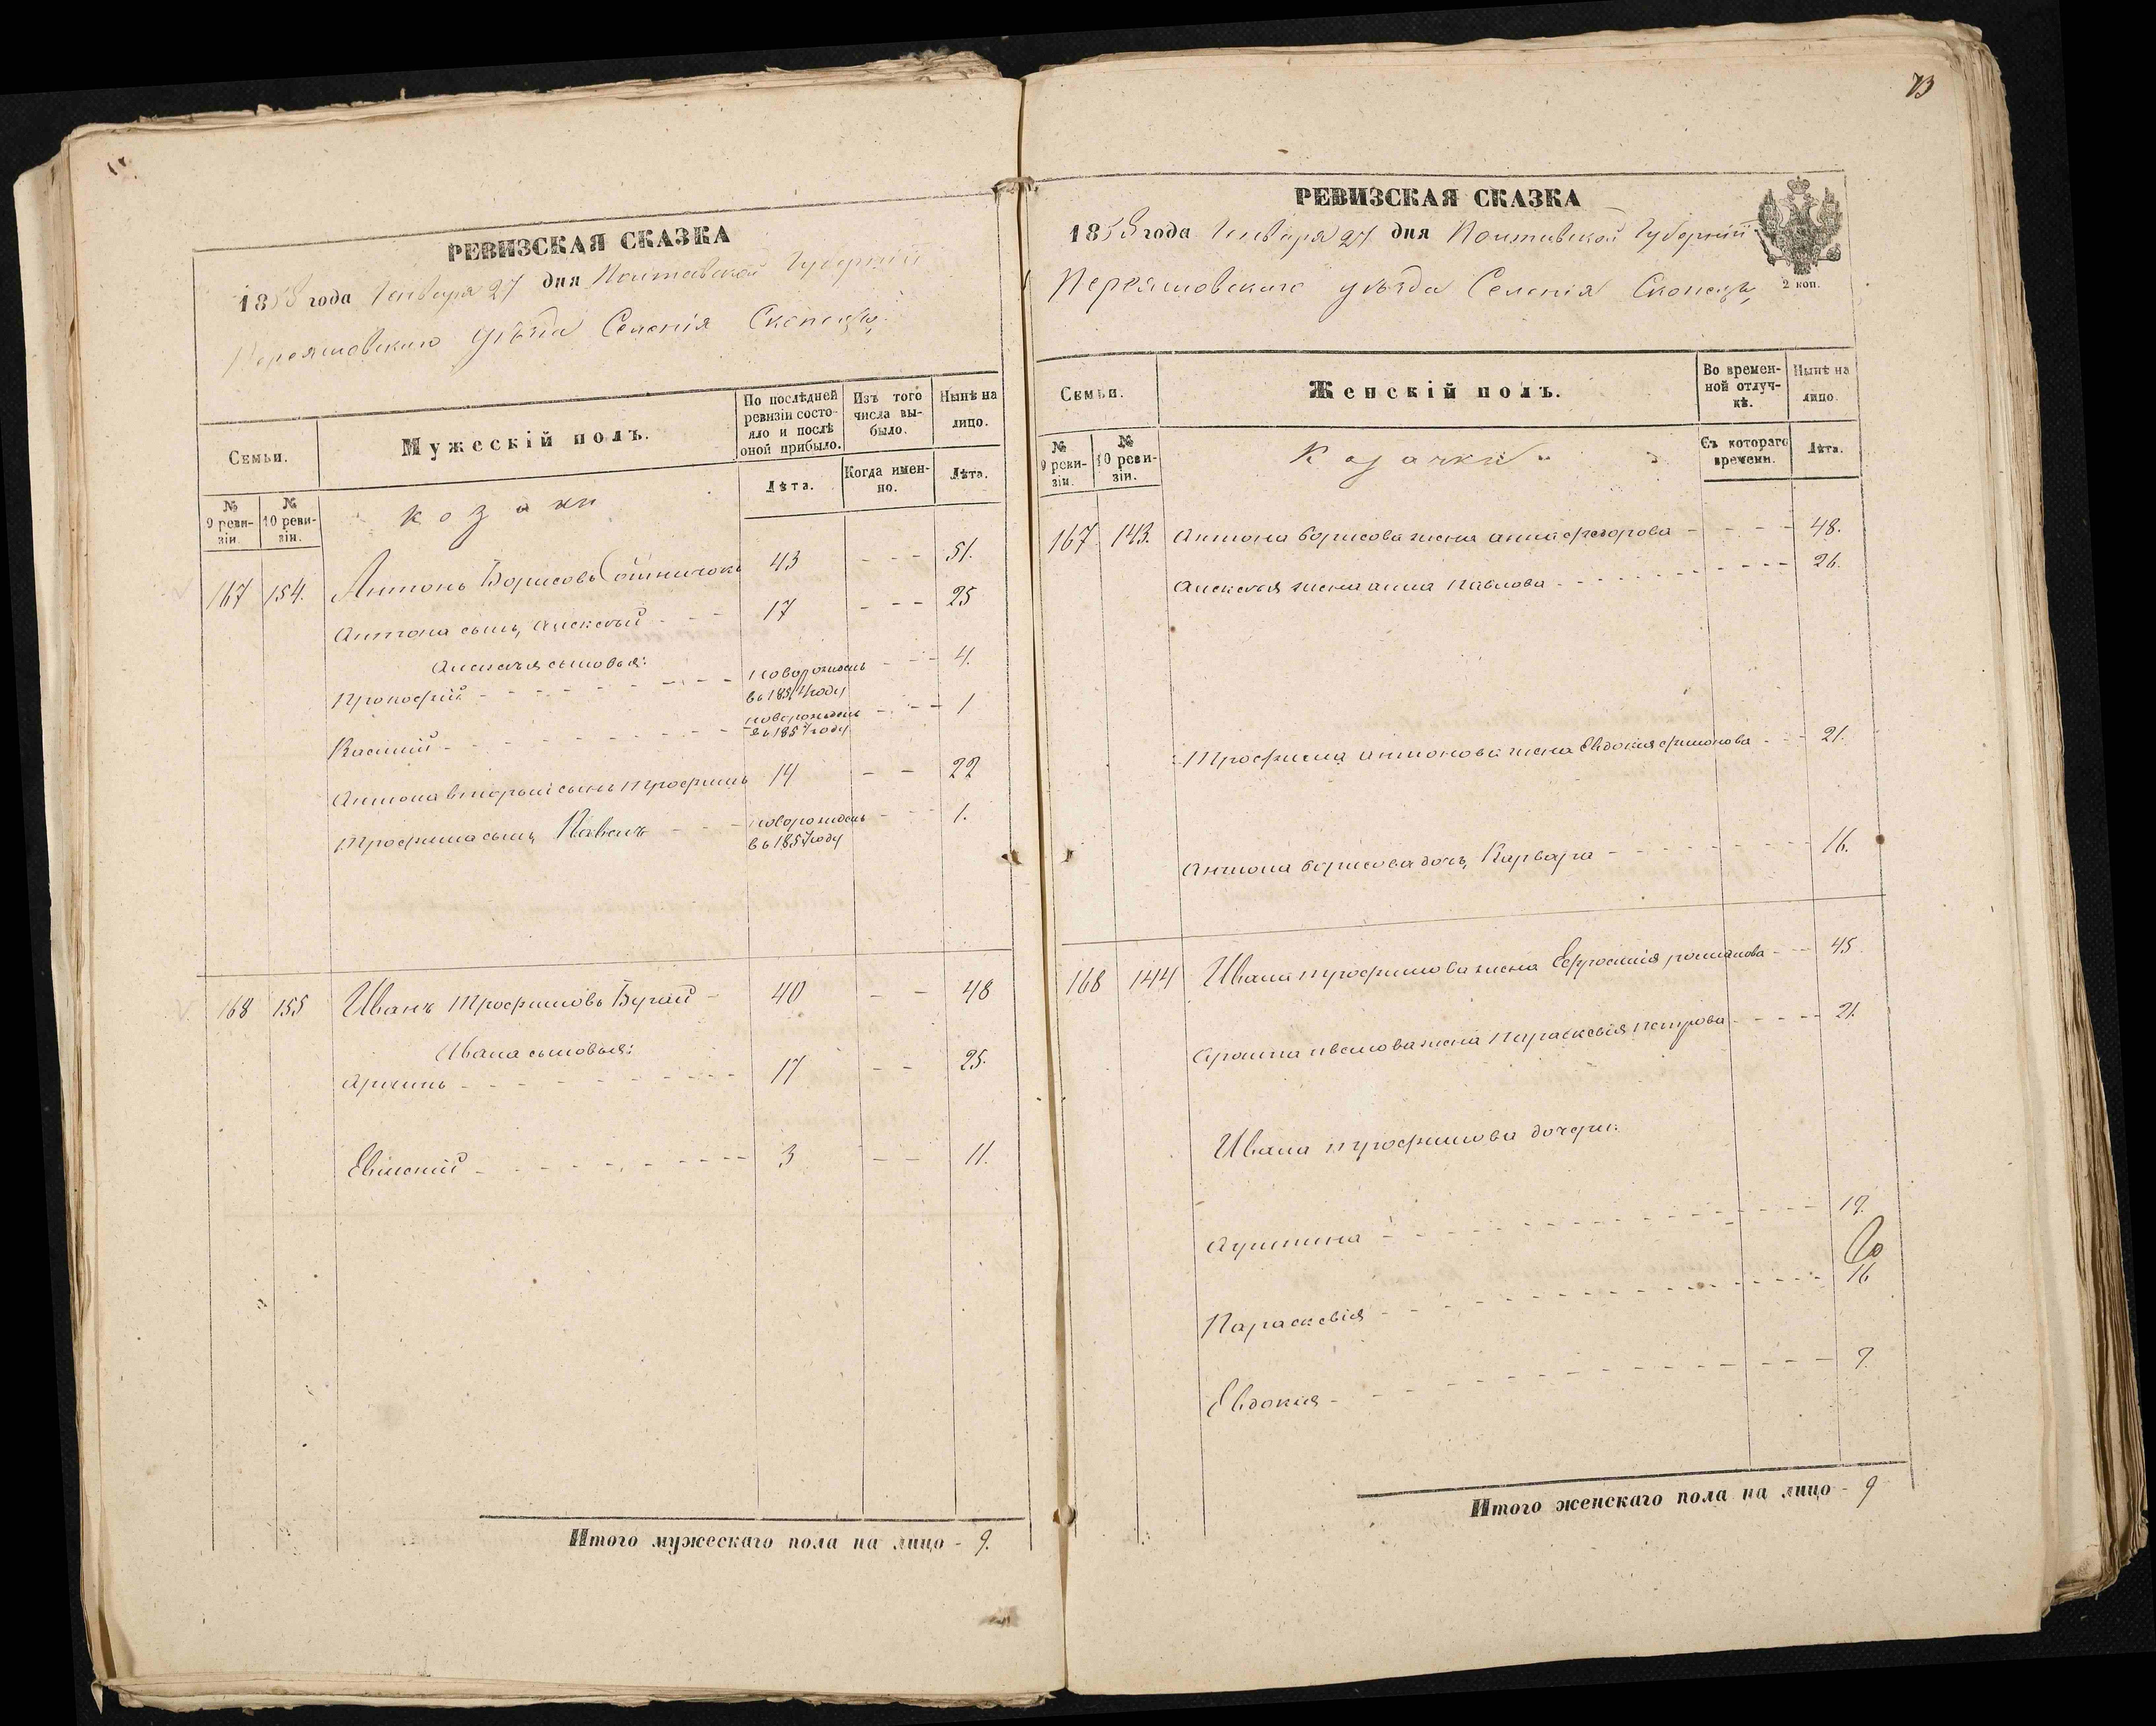 РЕВИЗСКАЯ СКАЗКА
1858 года Генваря 27 дня Полтавской Губерніи
Переяславскаго уѣзда Селенія Скопецкъ
Семьи.
Мужескій полъ.
По послѣдней ревизіи состояло и послѣ оной прибыло.
Изъ того числа выбыло.
Нынѣ на лицо.
№ 9 ревизіи.
№ 10 ревизіи.
козаки
Лѣта.
Когда именно.
Лѣта.
167 154. Антонъ Борисовъ 43 - - - 51.
Антона сынъ Алексѣй - - - 17 - - - 25
Алексѣя сыновья:
Прокофій - - - новорожденъ въ 1854 году - - - 4.
Василій - - - новорожденъ въ 1857 году - - - 1
Антона вторый сынъ Трофимъ 14 - - 22
Трофима сынъ Павелъ - - - новорожденъ въ 1857 году - - - 1.
168 155 Иванъ Трофимовъ Бугай - 40 - - 48
Ивана сыновья:
- - - 17 - - 25.
Евмений - - - 3 - - 11.
Итого мужескаго пола на лицо - 9.
73
РЕВИЗСКАЯ СКАЗКА
1858 года Генваря 27 дня Полтавской Губерніи
2 коп.
Переяславскаго уѣзда Селенія Скопецкъ
Семьи.
Женскій полъ.
Во временной отлучкѣ.
Нынѣ на лицо.
№ 9 ревизіи.
№ 10 ревизіи.
Козачки
Съ котораго времени.
Лѣта.
167 143. Антона Борисова жена Анна Федорова - - - - 48.
Алексѣя жена Анна Павлова - - - 26.
Трофима Антонова жена Евдокия Филипова - - - 21.
Антона Борисова дочь Варвара - - - 16.
168 144 Ивана Трофимова жена Ефросинія Романова - - - 45.
Ивановa жена Параскевія Петрова - - - 21.
Ивана Трофимова дочери:
- - - 19.
Параскевія - - - 16
Евдокия - - - 9.
Итого женскаго пола на лицо - 9